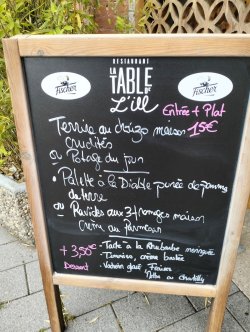 RESTAURANT
LA TABLE DE
L'ill
Fischer
Fischer
Entrée + Plat
15€
Terrine au chorizo maison
crudités
ou Potage du jour
• Palette à la Diable purée de pomme
de terre
ou Ravioles aux 3 fromages maison
Crème au Parmesan
+ 3,50€
Dessert
- Tarte à la Rhubarbe meringuée
- Tiramisu, crème brûlée
- Vacherin glacé Fraises